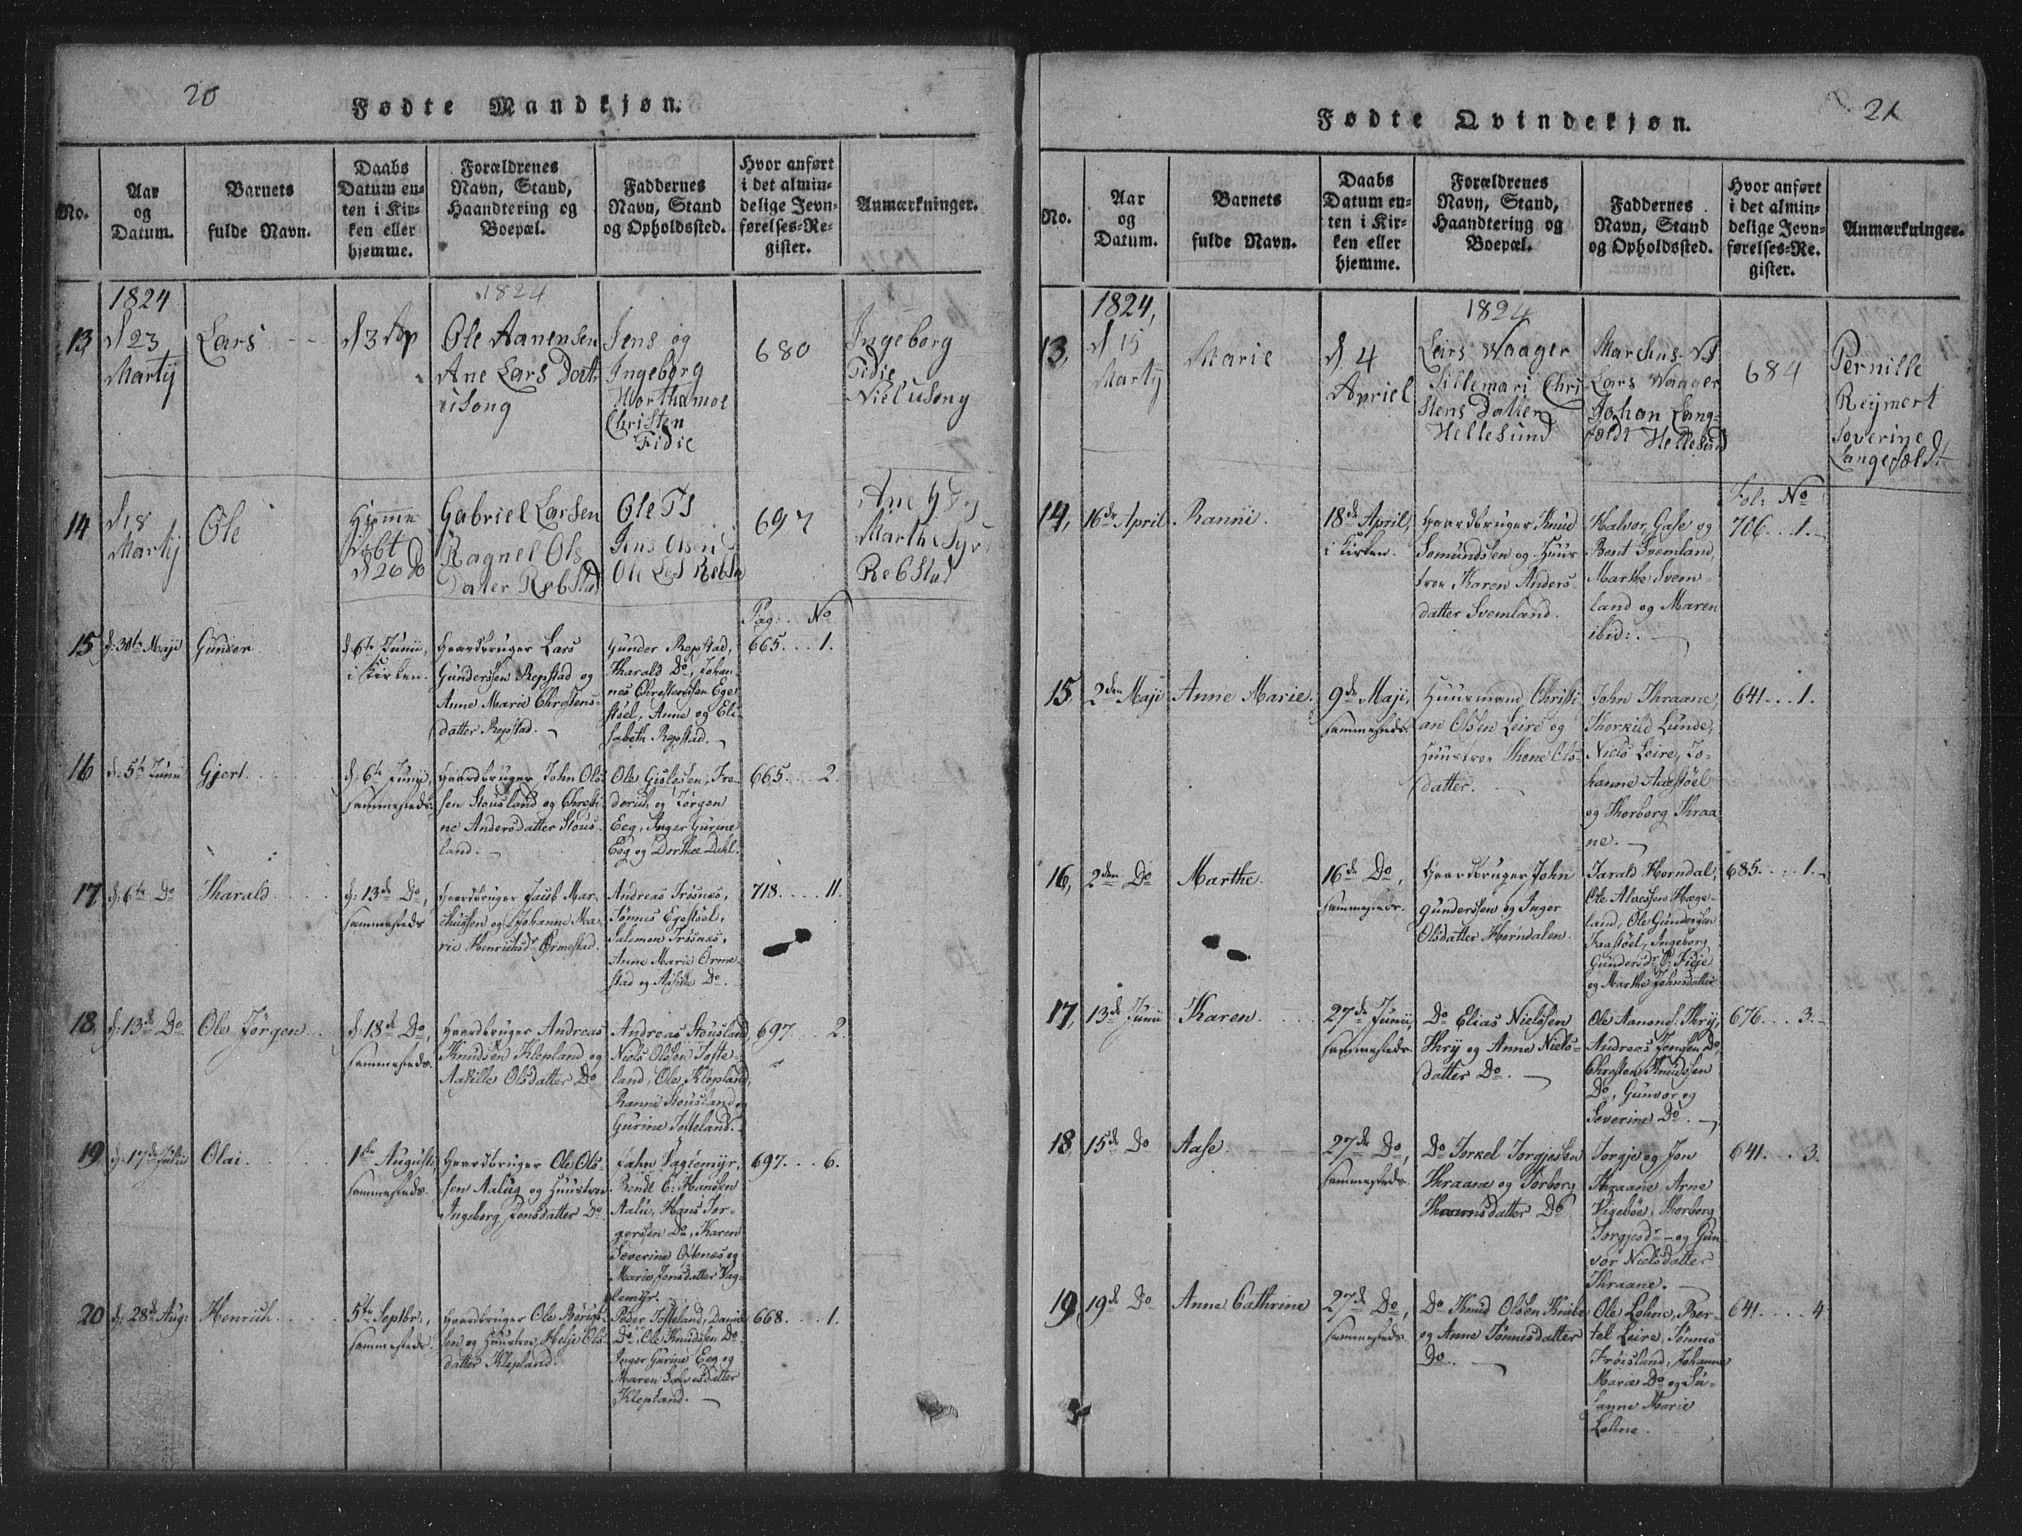 20
Fødte Mandkjøn.
No.
Aar
og
Datum.
Barnets
fulde Navn.
Daabs
Datum en-
ten i Kir-
ken eller
hjemme.
Forældrenes
Navn, Stand,
Haandtering og
Boepæl.
Faddernes
Navn, Stand
og Opholdssted.
Hvor anført
i det almin-
delige Jevn-
førelses-Re-
gister.
Anmærkninger.
1824
1824
13
d 23
Martij
Lars
d 3 Ap
Ole Aanensen
Ane Lars Dott
Jens og
Ingeborg
Christen
Fidie
680
Ingeborg
Fidie
14
d 18
Martij
Ole
Hiemme
Døbt
d 20 do
Gabriel Larsen
Ragnel Ols
Datter Røbstad
Ole
Jens Olsen
Ole
697
Ane
Marthe
Rebstad
Pag: No
15
d: 30te Maji
Gunder
d: 6te Junii,
i Kirken.
Gaardbruger Lars
Gunderssen Repstad og
Anne Marie Christens-
datter Repstad.
Gunder Repstad,
Tharald Do, Johan-
nes Christenssen Ege-
støel, Anne og Eli-
sabeth Repstad.
665. 1.
16
d: 5te Junii
Gjert
d: 6te Junii,
sammesteds.
Gaardbruger John Ols-
sen Stousland og Christi-
ne Andersdatter Stous-
land.
Ole Gislesen, Fre-
derich og Jørgen
Eeg, Inger Gurine
Eeg og Dorthea Dahl.
665. 2.
17
d: 6te Do
Tharald
d: 13de Do,
sammesteds
Gaardbruger Jacob Mar-
cussen og Johanne Ma-
rie Henrichsdr Ormestad.
Andreas Trøsnæs,
Tønnes Egestøel,
Salemon Trøsnæs,
Anne Marie Orme-
stad og Aasille Do.
718. 11.
18
d: 13de Do
Ole Jørgen
d: 18de Do,
sammesteds.
Gaardbruger Andreas
Knudsen Klepland og
Aasille Olsdatter Do
Andreas Stousland,
Niels Olsen Tofte-
land, Ole Klepland,
Ranni Stousland og
Gurine Tofteland.
697. 2.
19
d: 17de Julii
Olai
1ste Augusti,
sammesteds.
Gaardbruger Ole Ols-
sen Aalug og Huustroe
Ingeborg Jensdatter Do
Jahn Vaglemyr,
Bendt C: Hansen
Aalu, Hans Tor-
gersen Do, Karen
Severine Østenes og
Marie Jensdatter Vag-
lemyr.
697. 6.
20
d: 28de Aug:
Henrich
5te Septbr:,
sammesteds.
Gaardbruger Ole Børuf-
sen og Huustroe Helje Ols-
datter Klepland.
Peder Tofteland, Daniel
Do, Ole Knudsen Do,
Inger Gurine Eeg og
Maren Salvesdatter
Klepland.
668. 1.
21
Fødte Qvindekjøn.
No.
Aar
og
Datum.
Barnets
fulde Navn.
Daabs
Datum en-
ten i Kir-
ken eller
hjemme.
Forældrenes
Navn, Stand,
Haandtering og
Boepæl.
Faddernes
Navn, Stand
og Opholdssted.
Hvor anført
i det almin-
delige Jevn-
førelses-Re-
gister.
Anmærkninger.
1824,
1824
13,
d 15
Martij
Marie
d. 4
Apriel
Lars Waager
Sillemari Chri
stens Datter
Hellesund
Marchus
Lars Waager
Johan Lang-
fældt Hellesund
684
Pernille
Reijmert
Soverine
Langefældt
Fol: No
14,
16de April
Ranni.
18de April,
i Kirken.
Gaardbruger Knud
Somundssen og Huus-
troe Karen Anders-
datter Svemland.
Halvor Gase og
Berit Svemland,
Marthe Svem-
land og Maren
ibid:.
706. 1.
15,
2den Maji
Anne Marie.
9de Maji,
sammesteds.
Huusmand Christi-
an Olsen Leire og
Huustroe Thone Ols-
datter.
John Thraane,
Thorkild Lunde,
Niels Leire, Jo-
hanne Aastøel
og Thorborg Thraa-
ne.
641. 1.
16,
2den Do
Marthe.
16de Do,
sammesteds.
Gaardbruger John
Gunderssen og Inger
Olsdatter Horndalen.
Tarald Horndal,
Ole Alvessen Hæge-
land, Ole Gunderssen
Kaastøel, Ingeborg
Gundersdr Ø: Fidje
og Marthe Johnsdatter
685. 1.
17,
13de Junii
Karen
27de Junii,
sammesteds.
Do Elias Nielssen
Thry og Anne Niels-
datter Do.
Ole Aanonds: Thry,
Andreas Jensen Do,
Christen Knudssen
Do, Gunvor og
Severine Do.
676. 3.
18
15de Do
Aase
27de Do,
sammesteds.
Do Torkel Torgjesen
Thraane og Torborg
Thoamsdatter Do
Torgje og Jon
Thraane Arne
Vigebøe, Thorborg
Torgjesdr og Gun-
vor Nielsdatter
Thraane.
641. 3.
19,
19de Do
Anne Cathrine
27de Do,
sammesteds.
Do Knud Olsen Knibe
og Anne Tønnesdatter
Do.
Ole Lohne, Ber-
tel Leire, Tønnes
Frøisland, Johanne
Marie Do og Su-
sanne Marie
Lohne.
641. 4